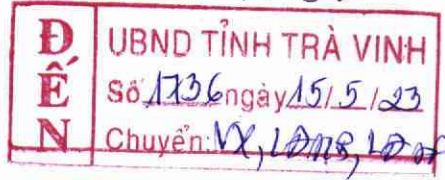 ĐẾN
UBND TỈNH TRÀ VINH
Số 1736 ngày 15/5/23
Chuyển: VX,